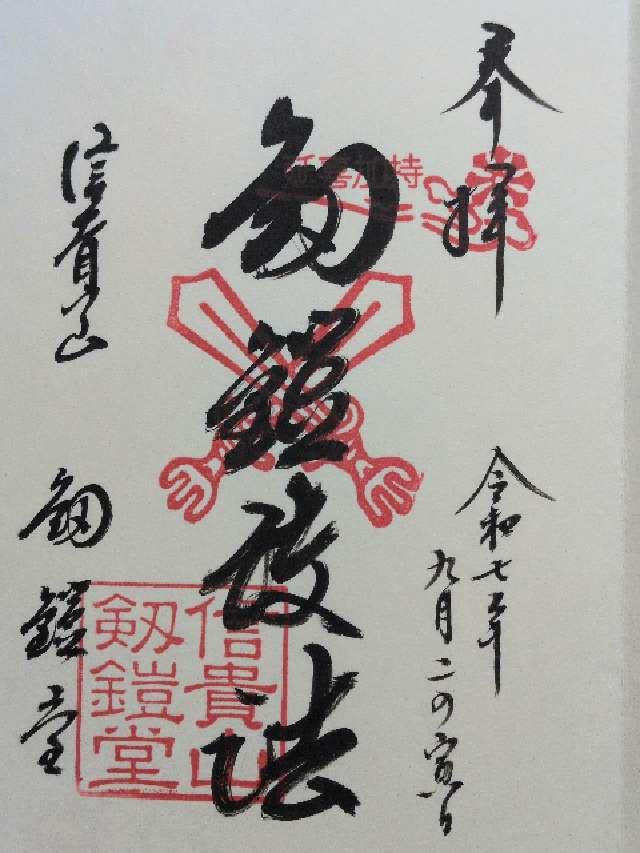 奉拝
令和七年
九月二の寅日
延喜加持
釼鎧護法
信貴山
釼鎧堂
信貴山
劔鎧堂